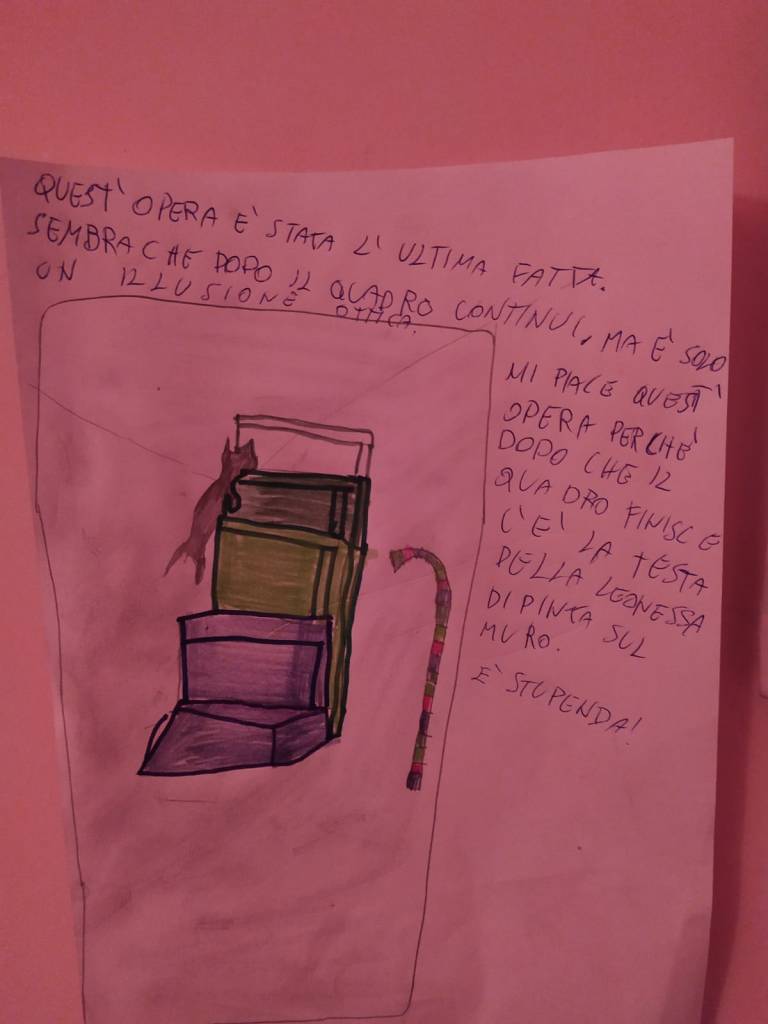 QUEST' OPERA E' STATA L' ULTIMA FATTA.
SEMBRA CHE DOPO IL QUADRO CONTINUI, MA E' SOLO
UN ILLUSIONE OTTICA.
MI PIACE QUEST'
OPERA PERCHE'
DOPO CHE IL
QUADRO FINISCE
C'E' LA TESTA
DELLA LEONESSA
DIPINTA SUL
MURO.
E' STUPENDA!